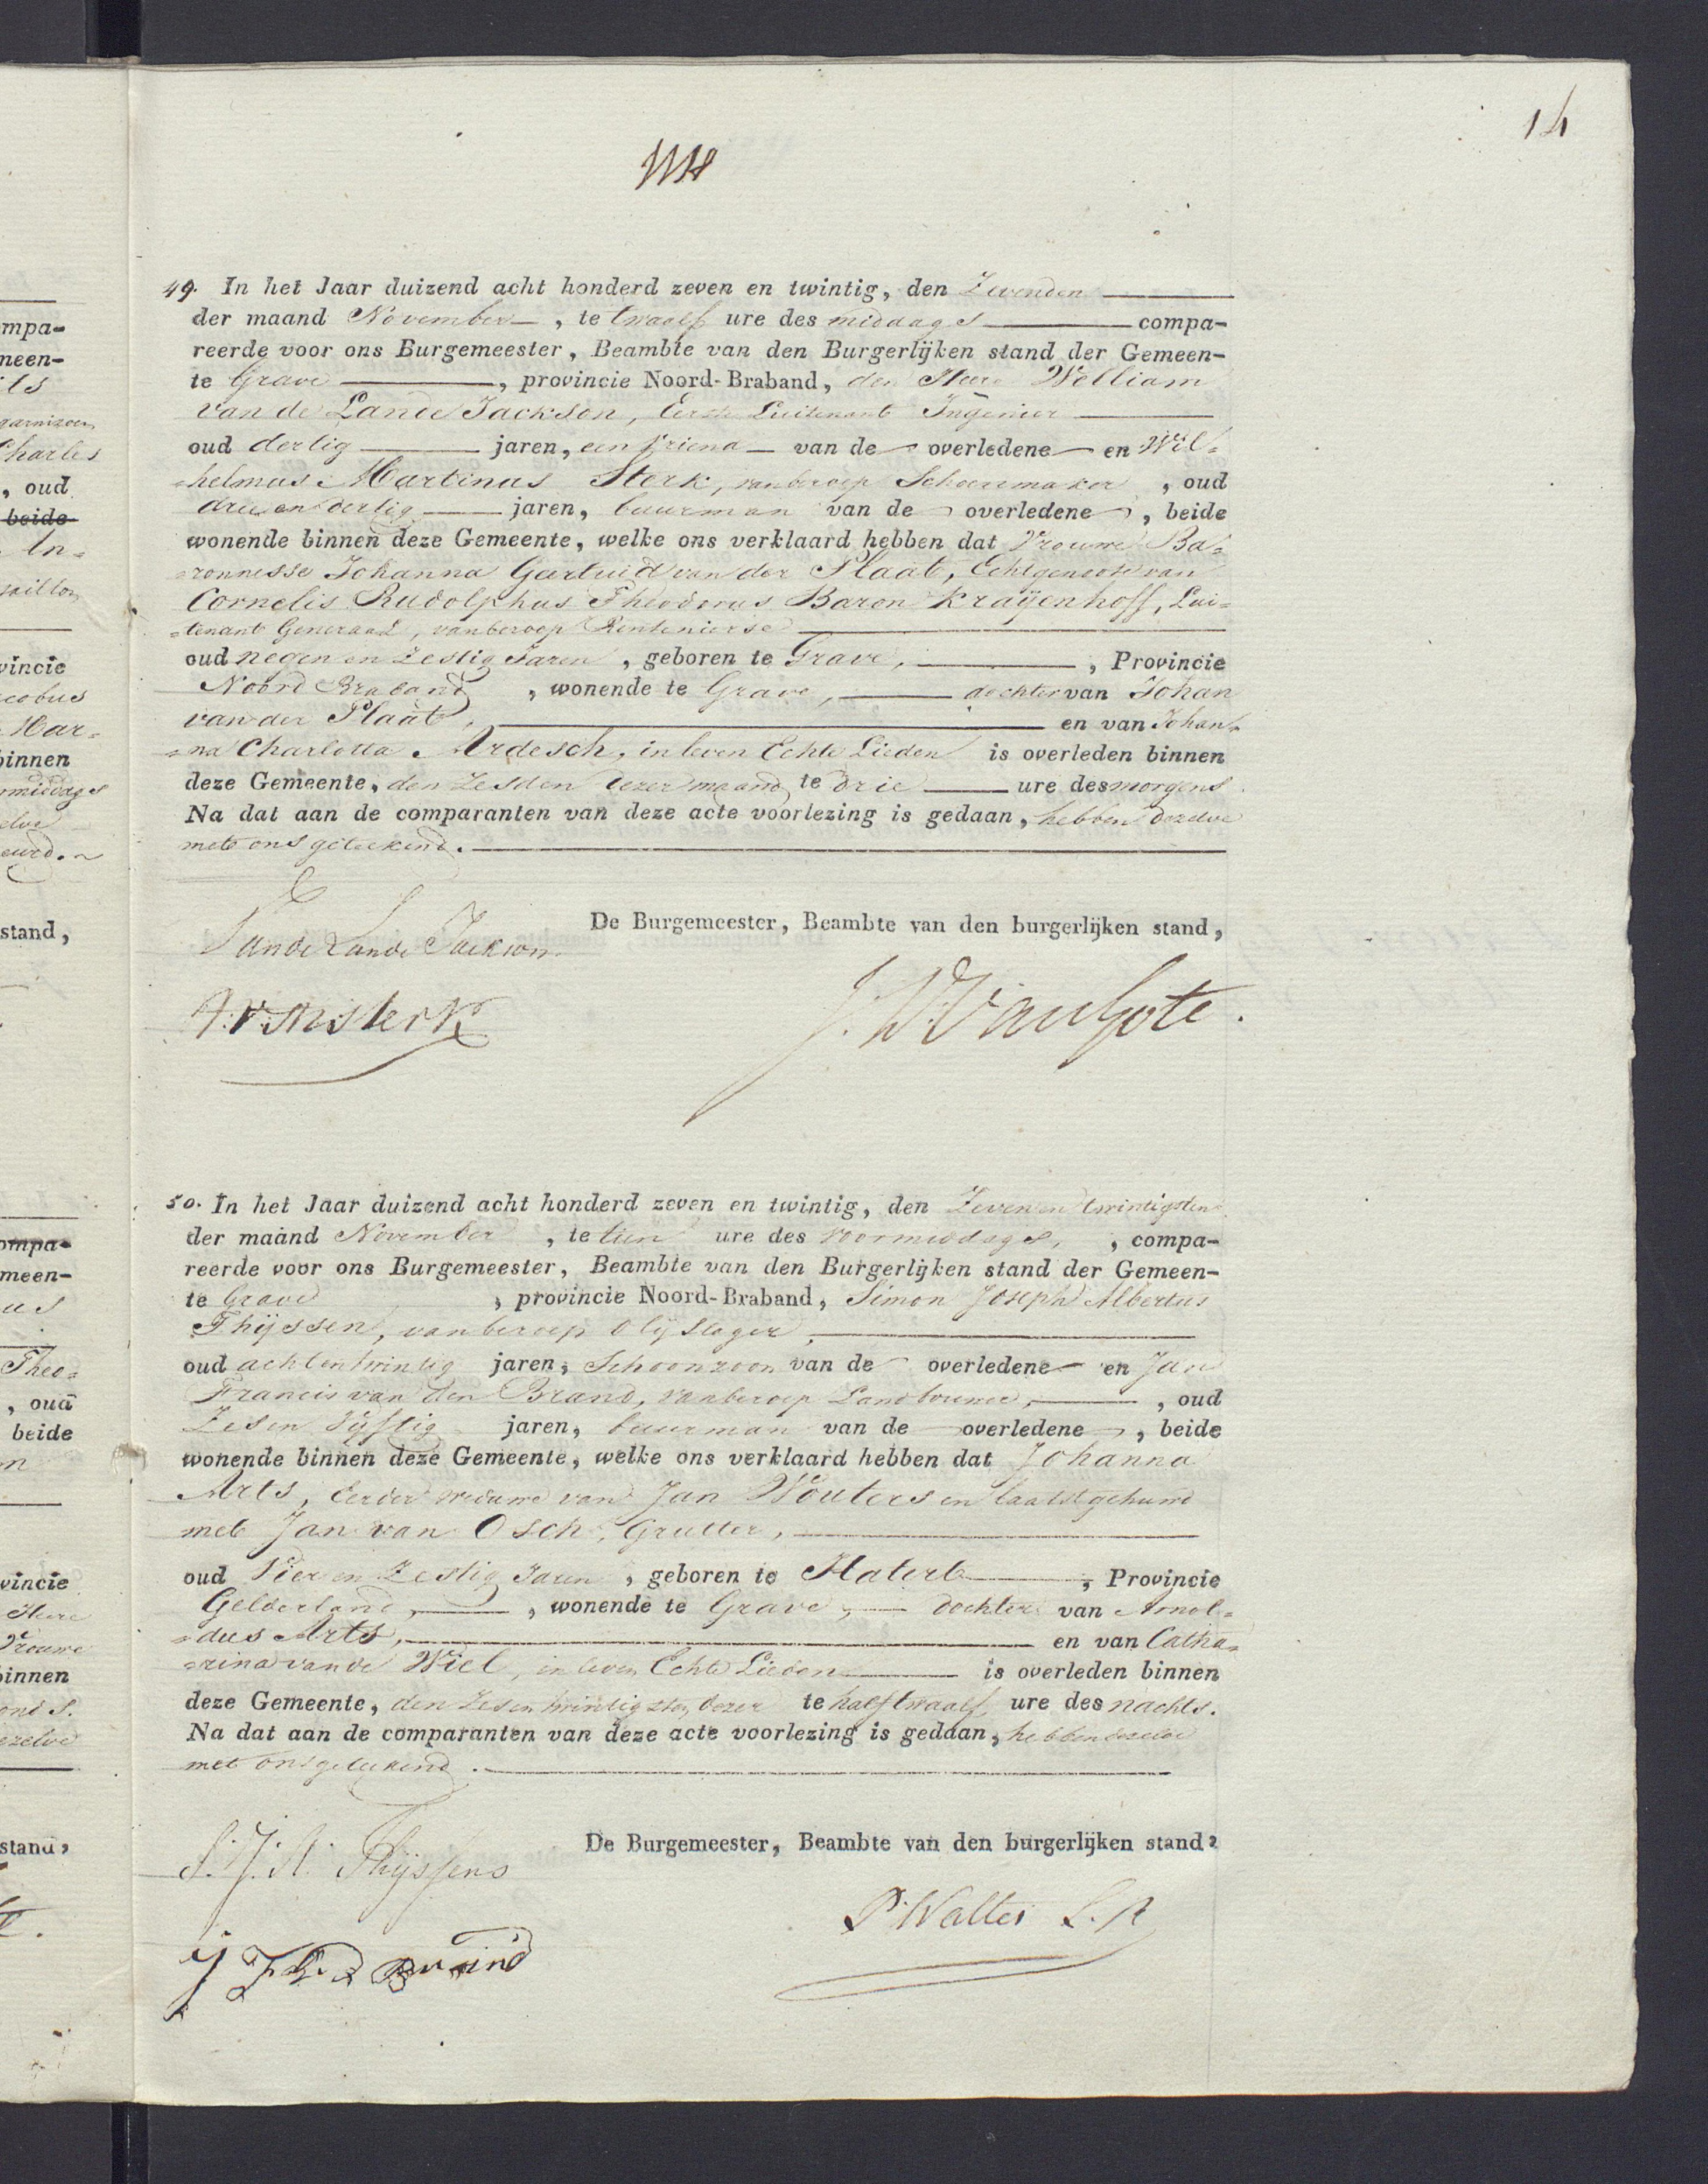 14
49. In het Jaar duizend acht honderd zeven en twintig, den Zevenden
der maand November, te twaalf ure des middags compa-
reerde voor ons Burgemeester, Beambte van den Burgerlijken stand der Gemeen-
te Grave, provincie Noord-Braband, den Heer Welliam
van de Lande Jackson, Eerste Luitenant Ingenier
oud dertig jaren, een vriend van de overledene en Wil=
=helmus Martinus Sterk, van beroep Schoenmaker, oud
drie en dertig jaren, buurman van de overledene, beide
wonende binnen deze Gemeente, welke ons verklaard hebben dat Vrouwe Ba=
=ronnesse Johanna Geertruid van der Plaat, Echtgenoote van
Cornelis Rudolphus Theodorus Baron Kraÿenhoff, Lui=
=tenant Generaal, van beroep Rentenierse
oud negen en Zestig Jaren, geboren te Grave, , Provincie
Noord Braband, wonende te Grave, dochter van Johan
van der Plaat, en van Johan=
=na Charlotta Ardesch, in leven Echte Lieden is overleden binnen
deze Gemeente, den Zesden dezer maand te drie ure des morgens
Na dat aan de comparanten van deze acte voorlezing is gedaan, hebben dezelve
met ons geteekend.
De Burgemeester, Beambte van den burgerlijken stand,
Van de Lande Jackson
W: M: Sterk
50. In het Jaar duizend acht honderd zeven en twintig, den Zeven en twintigsten
der maand November, te tien ure des voormiddags, , compa-
reerde voor ons Burgemeester, Beambte van den Burgerlijken stand der Gemeen-
te Grave, provincie Noord-Braband, Simon Joseph Albertus
Thijssen, van beroep Olijslager,
oud achtentwintig jaren, Schoonzoon van de overledene en Jan
Francis van den Brand, van beroep Landbouwer, , oud
Zes en Vijftig jaren, buurman van de overledene, beide
wonende binnen deze Gemeente, welke ons verklaard hebben dat Johanna
Arts, Eerder weduwe van Jan Wouters en laatst gehuwd
met Jan van Osch, Grutter,
oud Vier en Zestig Jaren, geboren te Hatert, Provincie
Gelderland, , wonende te Grave, dochter van Arnol=
=dus Arts, en van Catha=
=rina van de Wiel, in leven Echte Lieden is overleden binnen
deze Gemeente, den Zesentwintigsten dezer te half twaalf ure des nachts.
Na dat aan de comparanten van deze acte voorlezing is gedaan, hebben dezelve
met ons geteekend.
De Burgemeester, Beambte van den burgerlijken stand,
S: J: A: Thijssens
P. Walter